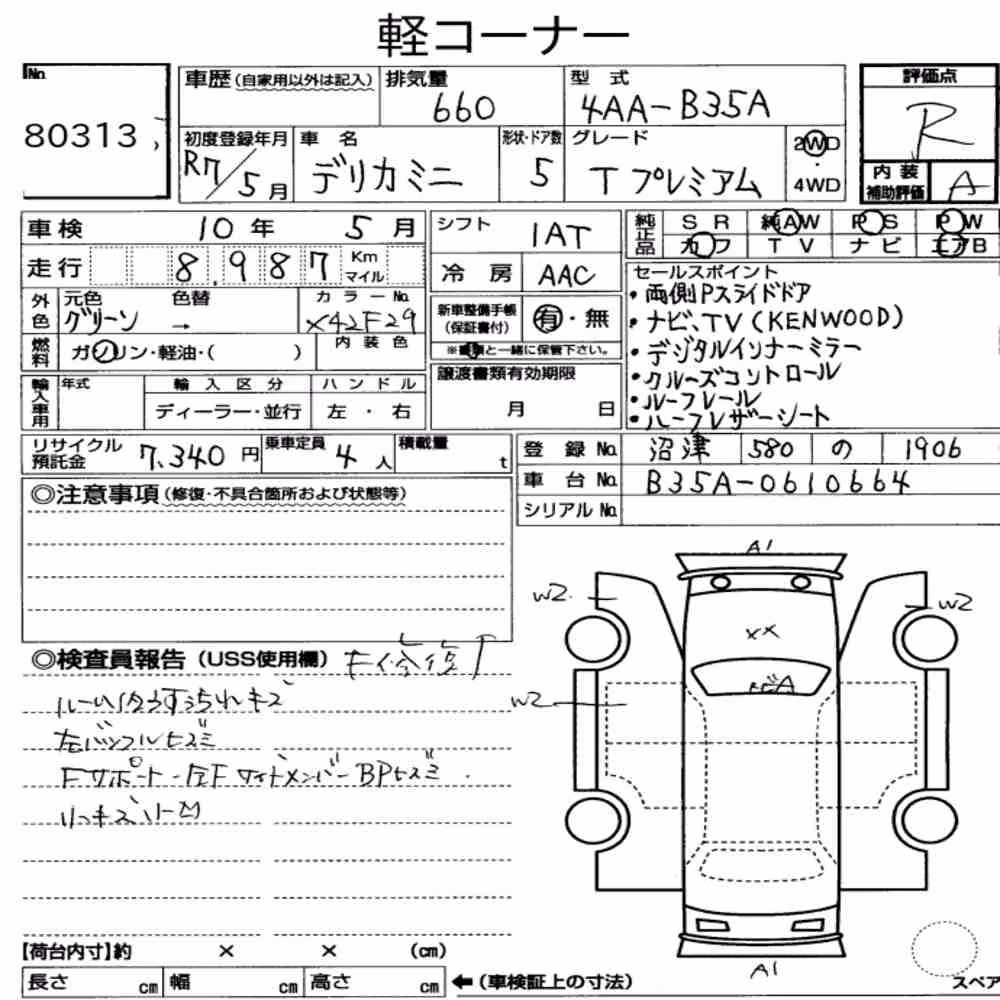 軽コーナー
No.
80313
車歴(自家用以外は記入) 排気量 660 型式 4AA-B35A
評価点 R
初度登録年月 R7/5月 車名 デリカミニ 形状・ドア数 5 グレード T プレミアム 2WD・4WD
内装補助評価 A
車検 10年 5月
シフト 1AT
純正品 SR 純AW PS PW
カワ TV ナビ エアB
走行 8,987 Km マイル
冷房 AAC
外色 元色 グリーン 色替 → カラーNo. X42F29
新車整備手帳(保証書付) 有・無
※車検証と一緒に保管下さい。
燃料 ガソリン・軽油・( ) 内装色
セールスポイント
・両側Pスライドドア
・ナビ、TV(KENWOOD)
・デジタルインナーミラー
・クルーズコントロール
・ルーフレール
・ハーフレザーシート
輸入車用 年式 輸入区分 ハンドル
ディーラー・並行 左・右
譲渡書類有効期限
月 日
リサイクル預託金 7,340円 乗車定員 4人 積載量 t
登録No. 沼津 580 の 1906
車台No. B35A-0610664
シリアルNo.
◎注意事項(修復・不具合箇所および状態等)
◎検査員報告(USS使用欄) F修復
キズ
左バッフルヒズミ
Fサポート・左FサイドメンバーBPヒズミ
A1
W2
W2
XX
W2
A1
【荷台内寸】約 × × (cm)
長さ cm 幅 cm 高さ cm ←(車検証上の寸法)
スペア